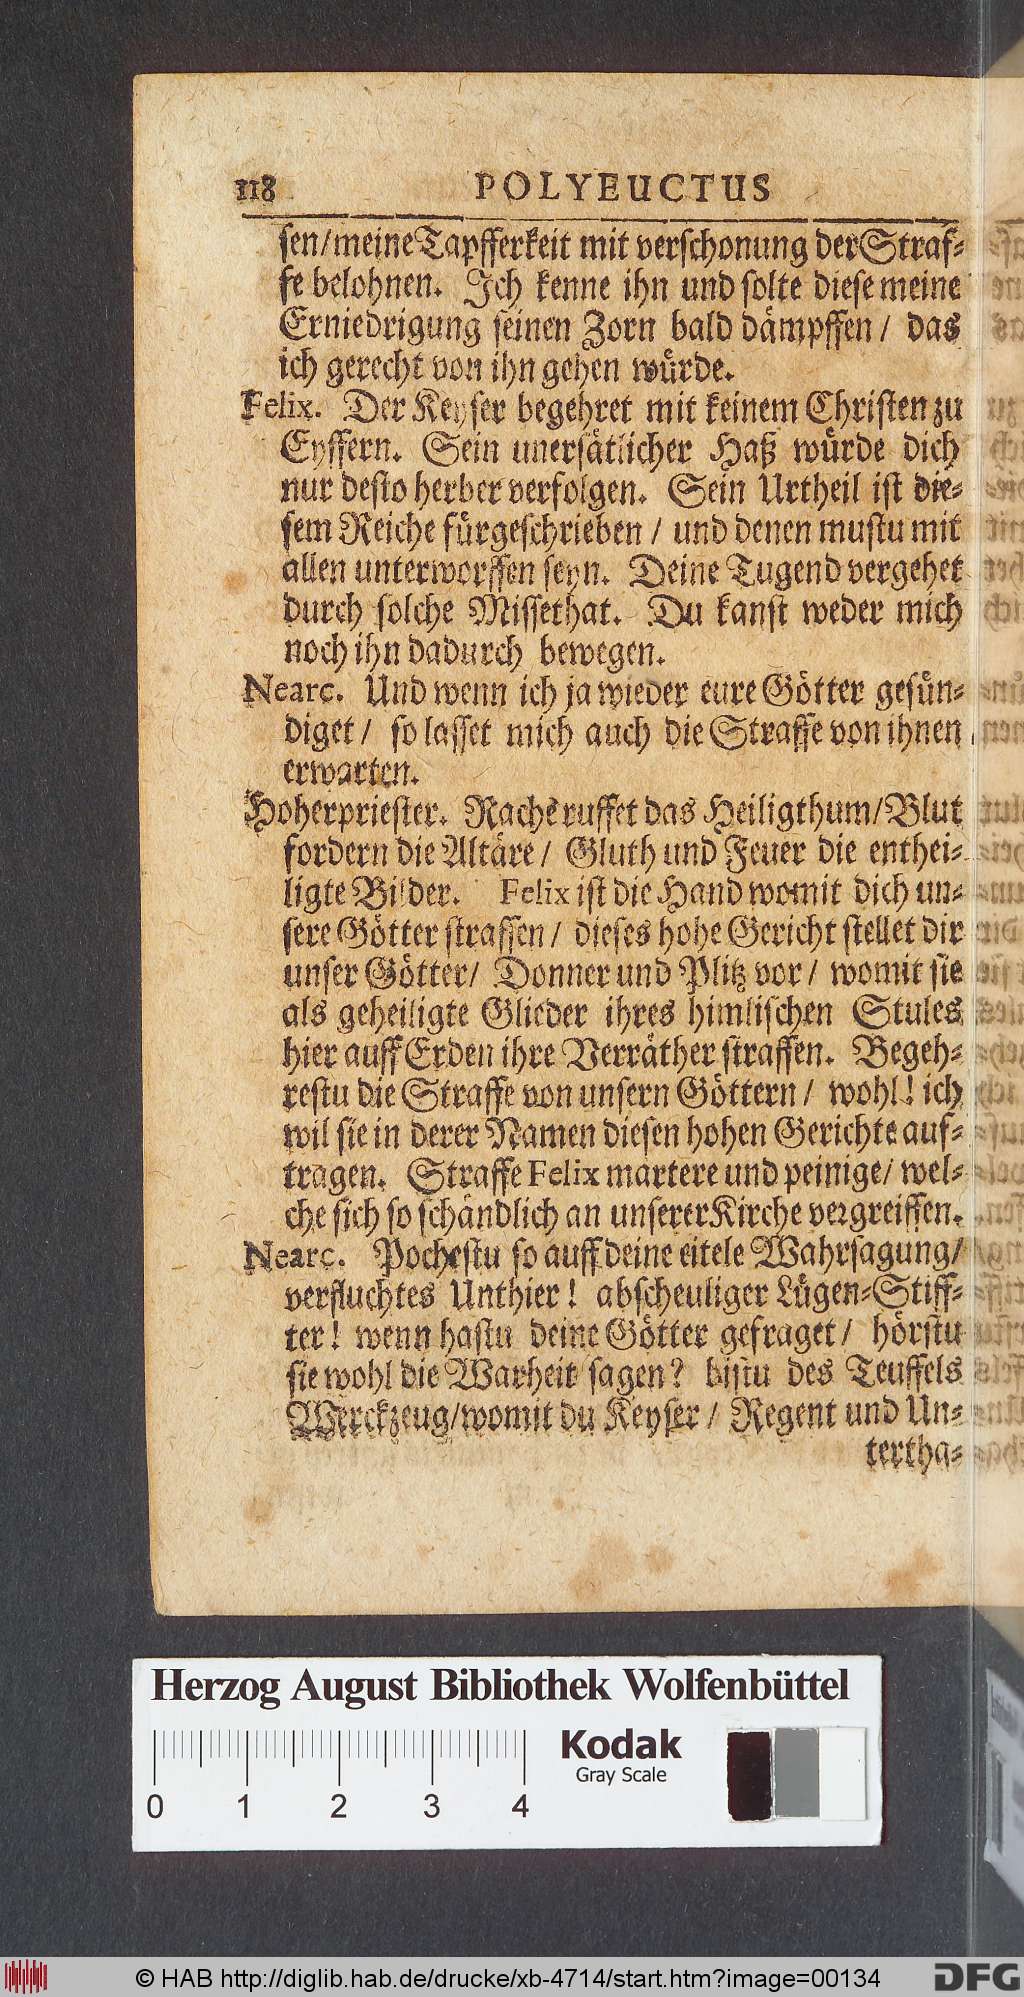 118 POLYEUCTUS
sen/meine Tapfferkeit mit verschonung der Straf-
fe belohnen. Ich kenne ihn und solte diese meine
Erniedrigung seinen Zorn bald dämpffen/ das
ich gerecht von ihn gehen würde.
Felix. Der Keyser begehret mit keinem Christen zu
Eyffern. Sein unersätlicher Haß würde dich
nur desto herber verfolgen. Sein Urtheil ist die-
sem Reiche fürgeschrieben / und denen mustu mit
allen unterworffen seyn. Deine Tugend vergehet
durch solche Missethat. Du kanst weder mich
noch ihn dadurch bewegen.
Nearc. Und wenn ich ja wieder eure Götter gesün-
diget / so lasset mich auch die Straffe von ihnen
erwarten.
Hoherpriester. Rache ruffet das Heiligthum/Blut
fordern die Altäre / Gluth und Feuer die enthei-
ligte Bilder. Felix ist die Hand womit dich un-
sere Götter straffen / dieses hohe Gericht stellet dir
unser Götter/ Donner und Plitz vor / womit sie
als geheiligte Glieder ihres himlischen Stules
hier auff Erden ihre Verräther straffen. Begeh-
restu die Straffe von unsern Göttern / wohl! ich
wil sie in derer Namen diesen hohen Gerichte auf-
tragen. Straffe Felix martere und peinige/ wel-
che sich so schändlich an unserer Kirche vergreiffen.
Nearc. Pochestu so auff deine eitele Wahrsagung/
verfluchtes Unthier! abscheuliger Lügen-Stiff-
ter! wenn hastu deine Götter gefraget / hörstu
sie wohl die Warheit sagen? bistu des Teuffels
Werckzeug/womit du Keyser / Regent und Un-
tertha-
Herzog August Bibliothek Wolfenbüttel
Kodak
Gray Scale
0 1 2 3 4
© HAB http://diglib.hab.de/drucke/xb-4714/start.htm?image=00134 DFG